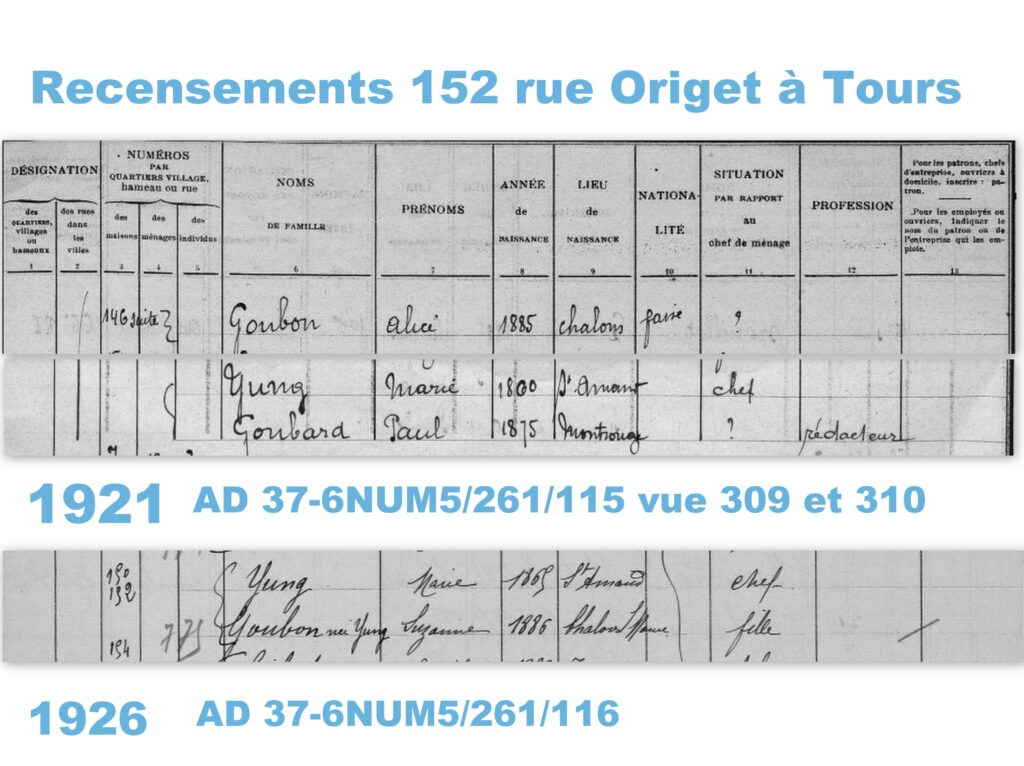 Recensements 152 rue Origet à Tours
DÉSIGNATION
des QUARTIERS, villages ou hameaux
des rues dans les villes
NUMÉROS PAR QUARTIERS VILLAGE, hameau ou rue
des maisons
des ménages
des individus
NOMS DE FAMILLE
PRÉNOMS
ANNÉE de NAISSANCE
LIEU de NAISSANCE
NATIONALITÉ
SITUATION PAR RAPPORT au chef de ménage
PROFESSION
Pour les patrons, chefs d'entreprise, ouvriers à domicile, inscrire : patron.
Pour les employés ou ouvriers, indiquer le nom du patron ou de l'entreprise qui les emploie.
1 2 3 4 5 6 7 8 9 10 11 12 13
146 suite Goubon Alice 1885 chalons ?
Yung Marie 1860 St Amant chef
Goubard Paul 1875 Montrouge ? rédacteur
1921 AD 37-6NUM5/261/115 vue 309 et 310
190
192 Yung Marie 1865 St Amand chef
775 Goubon née Yung Suzanne 1886 fille
194
1926 AD 37-6NUM5/261/116